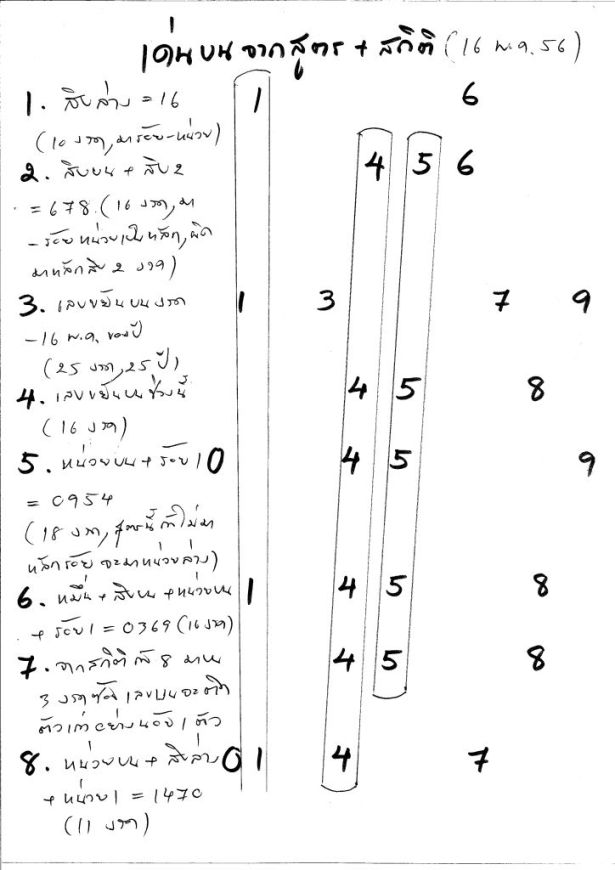 เด่นบนจากสูตร + สถิติ (16 พ.ค. 56)
1. สิบล่าง = 16 1 6
(10 งวด, มาร้อย-หน่วย)
2. สิบบน + สิบ 2 4 5 6
= 678 (16 งวด, มา
- ร้อยหน่วยเป็นหลัก, ผิด
มาหลักสิบ 2 งวด)
3. เลขขยันบนงวด 1 3 7 9
- 16 พ.ค. ของปี
(25 งวด, 25 ปี)
4. เลขขยันบนช่วงนี้ 4 5 8
(16 งวด)
5. หน่วยบน + ร้อย 1 0 4 5 9
= 0954
(18 งวด, สูตรนี้ถ้าไม่มา
หลักร้อยจะมาหน่วยล่าง)
6. หมื่น + สิบบน + หน่วยบน 1 4 5 8
+ ร้อย 1 = 0369 (16 งวด)
7. จากสถิติถ้า 8 มาบน 4 5 8
3 งวดซ้อน เลขบนจะติด
ตัวเก่าอย่างน้อย 1 ตัว
8. หน่วยบน + สิบล่าง 0 1 4 7
+ หน่วย 1 = 1470
(11 งวด)